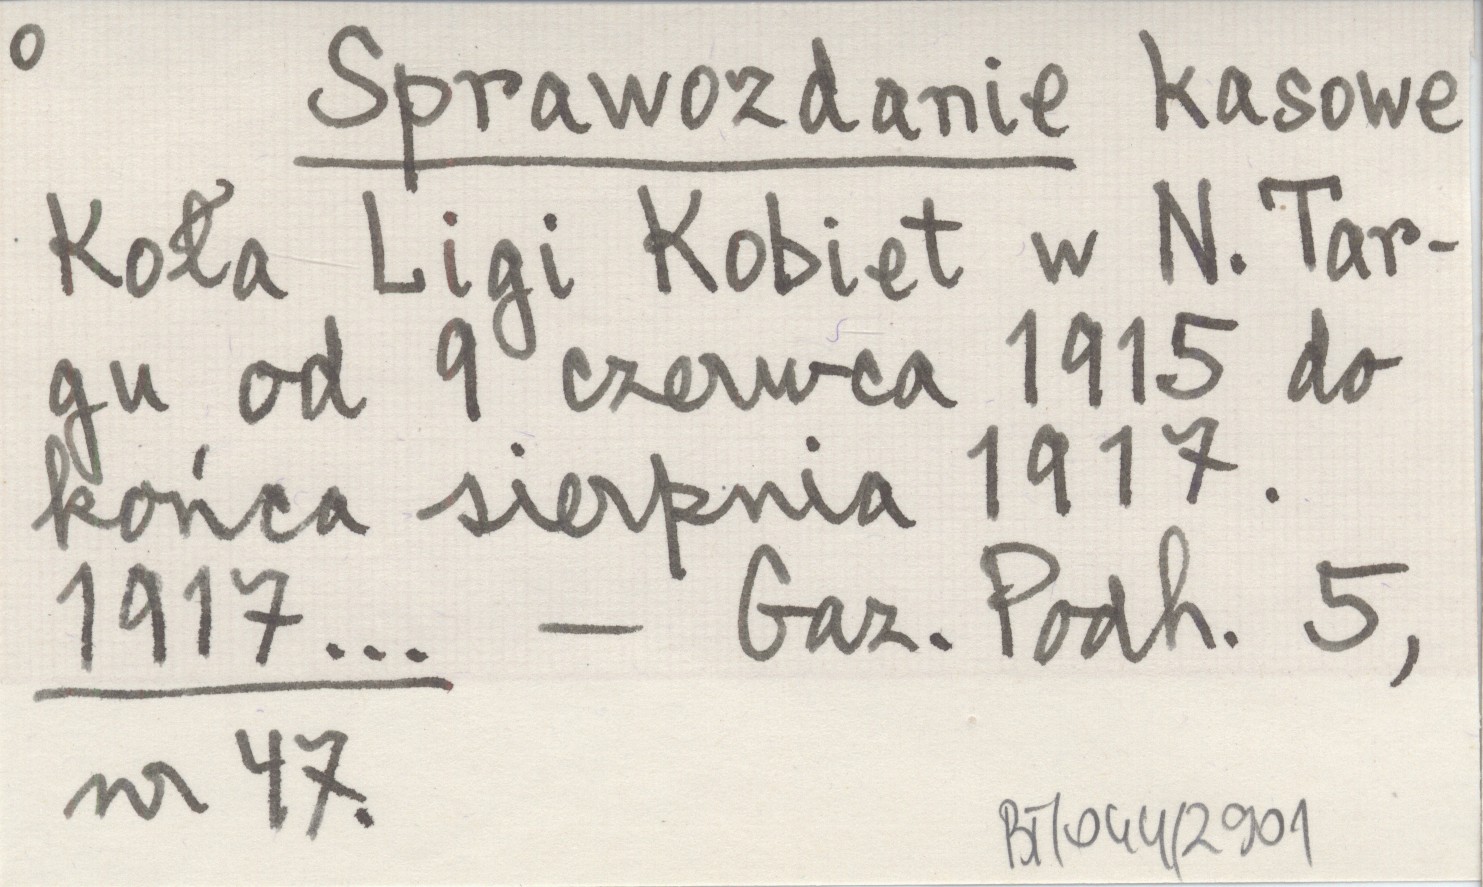 o Sprawozdanie kasowe
Koła Ligi Kobiet w N. Tar-
gu od 9 czerwca 1915 do
końca sierpnia 1917.
1917... — Gaz. Podh. 5,
nr 47.
BT/044/2901